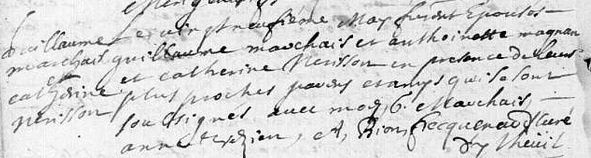 Guillaume
marchais
et
catherine
nerisson
Le vingt neufieme May furent Epousés
guillaume marchais et anthoinette magnan
et catherine Nerisson en presence de leurs
plus proches parens et amys qui se sont
sousignes avec moy, G. Marchais,
anne
curé
du Thueil